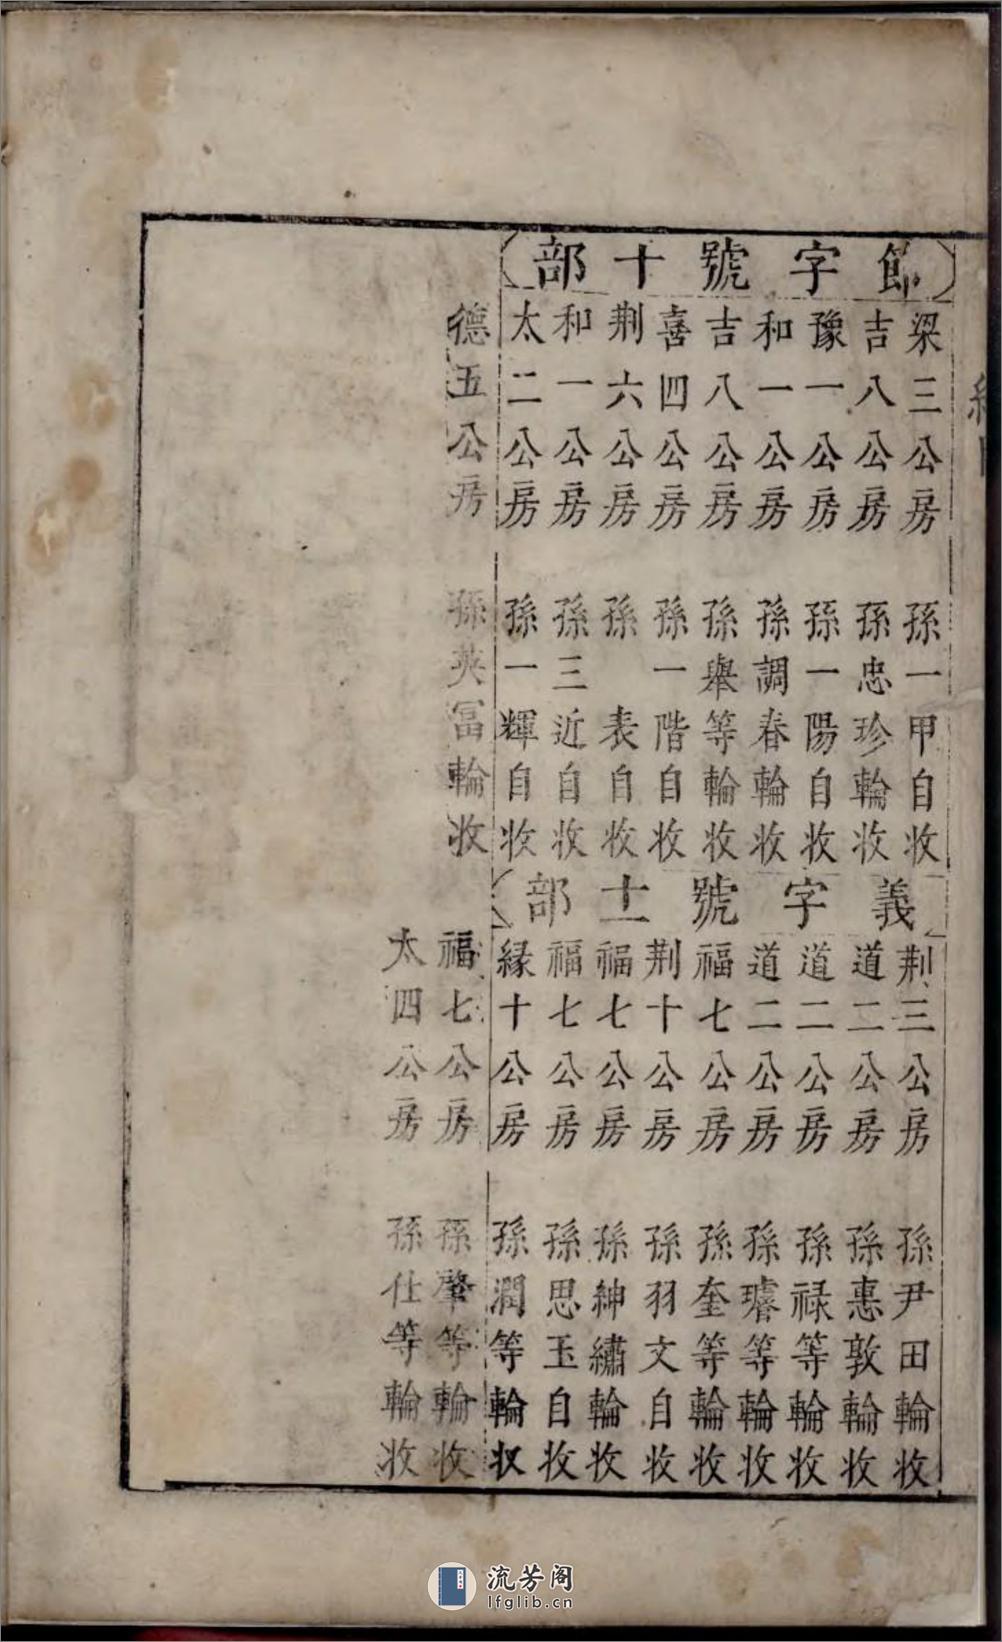 節字號十部
梁三公房　孫一甲自收
吉八公房　孫忠珍輪收
豫一公房　孫一陽自收
和一公房　孫調春輪收
吉八公房　孫舉等輪收
喜四公房　孫一階自收
荆六公房　孫　表自收
和一公房　孫三近自收
太二公房　孫一輝自收
德五公房　孫英冨輪收
義字號十一部
荆三公房　孫尹田輪收
道二公房　孫惠敦輪收
道二公房　孫禄等輪收
道二公房　孫璿等輪收
福七公房　孫奎等輪收
荆十公房　孫羽文自收
福七公房　孫紳繡輪收
福七公房　孫思玉自收
縁十公房　孫潤等輪收
福七公房　孫肇等輪收
太四公房　孫仕等輪收
流芳阁
lfglib.cn